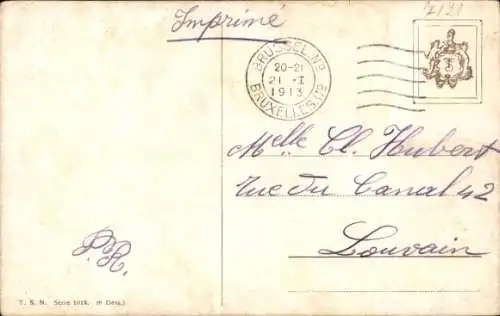 Imprimé
7121
BRUSSEL. No
20-21
21 · I
1913
BRUXELLES. No
Melle Cl. Hubert
rue du Canal 42
Louvain
P.R.
T. S. N. Serie 1018. (6 Dess.)